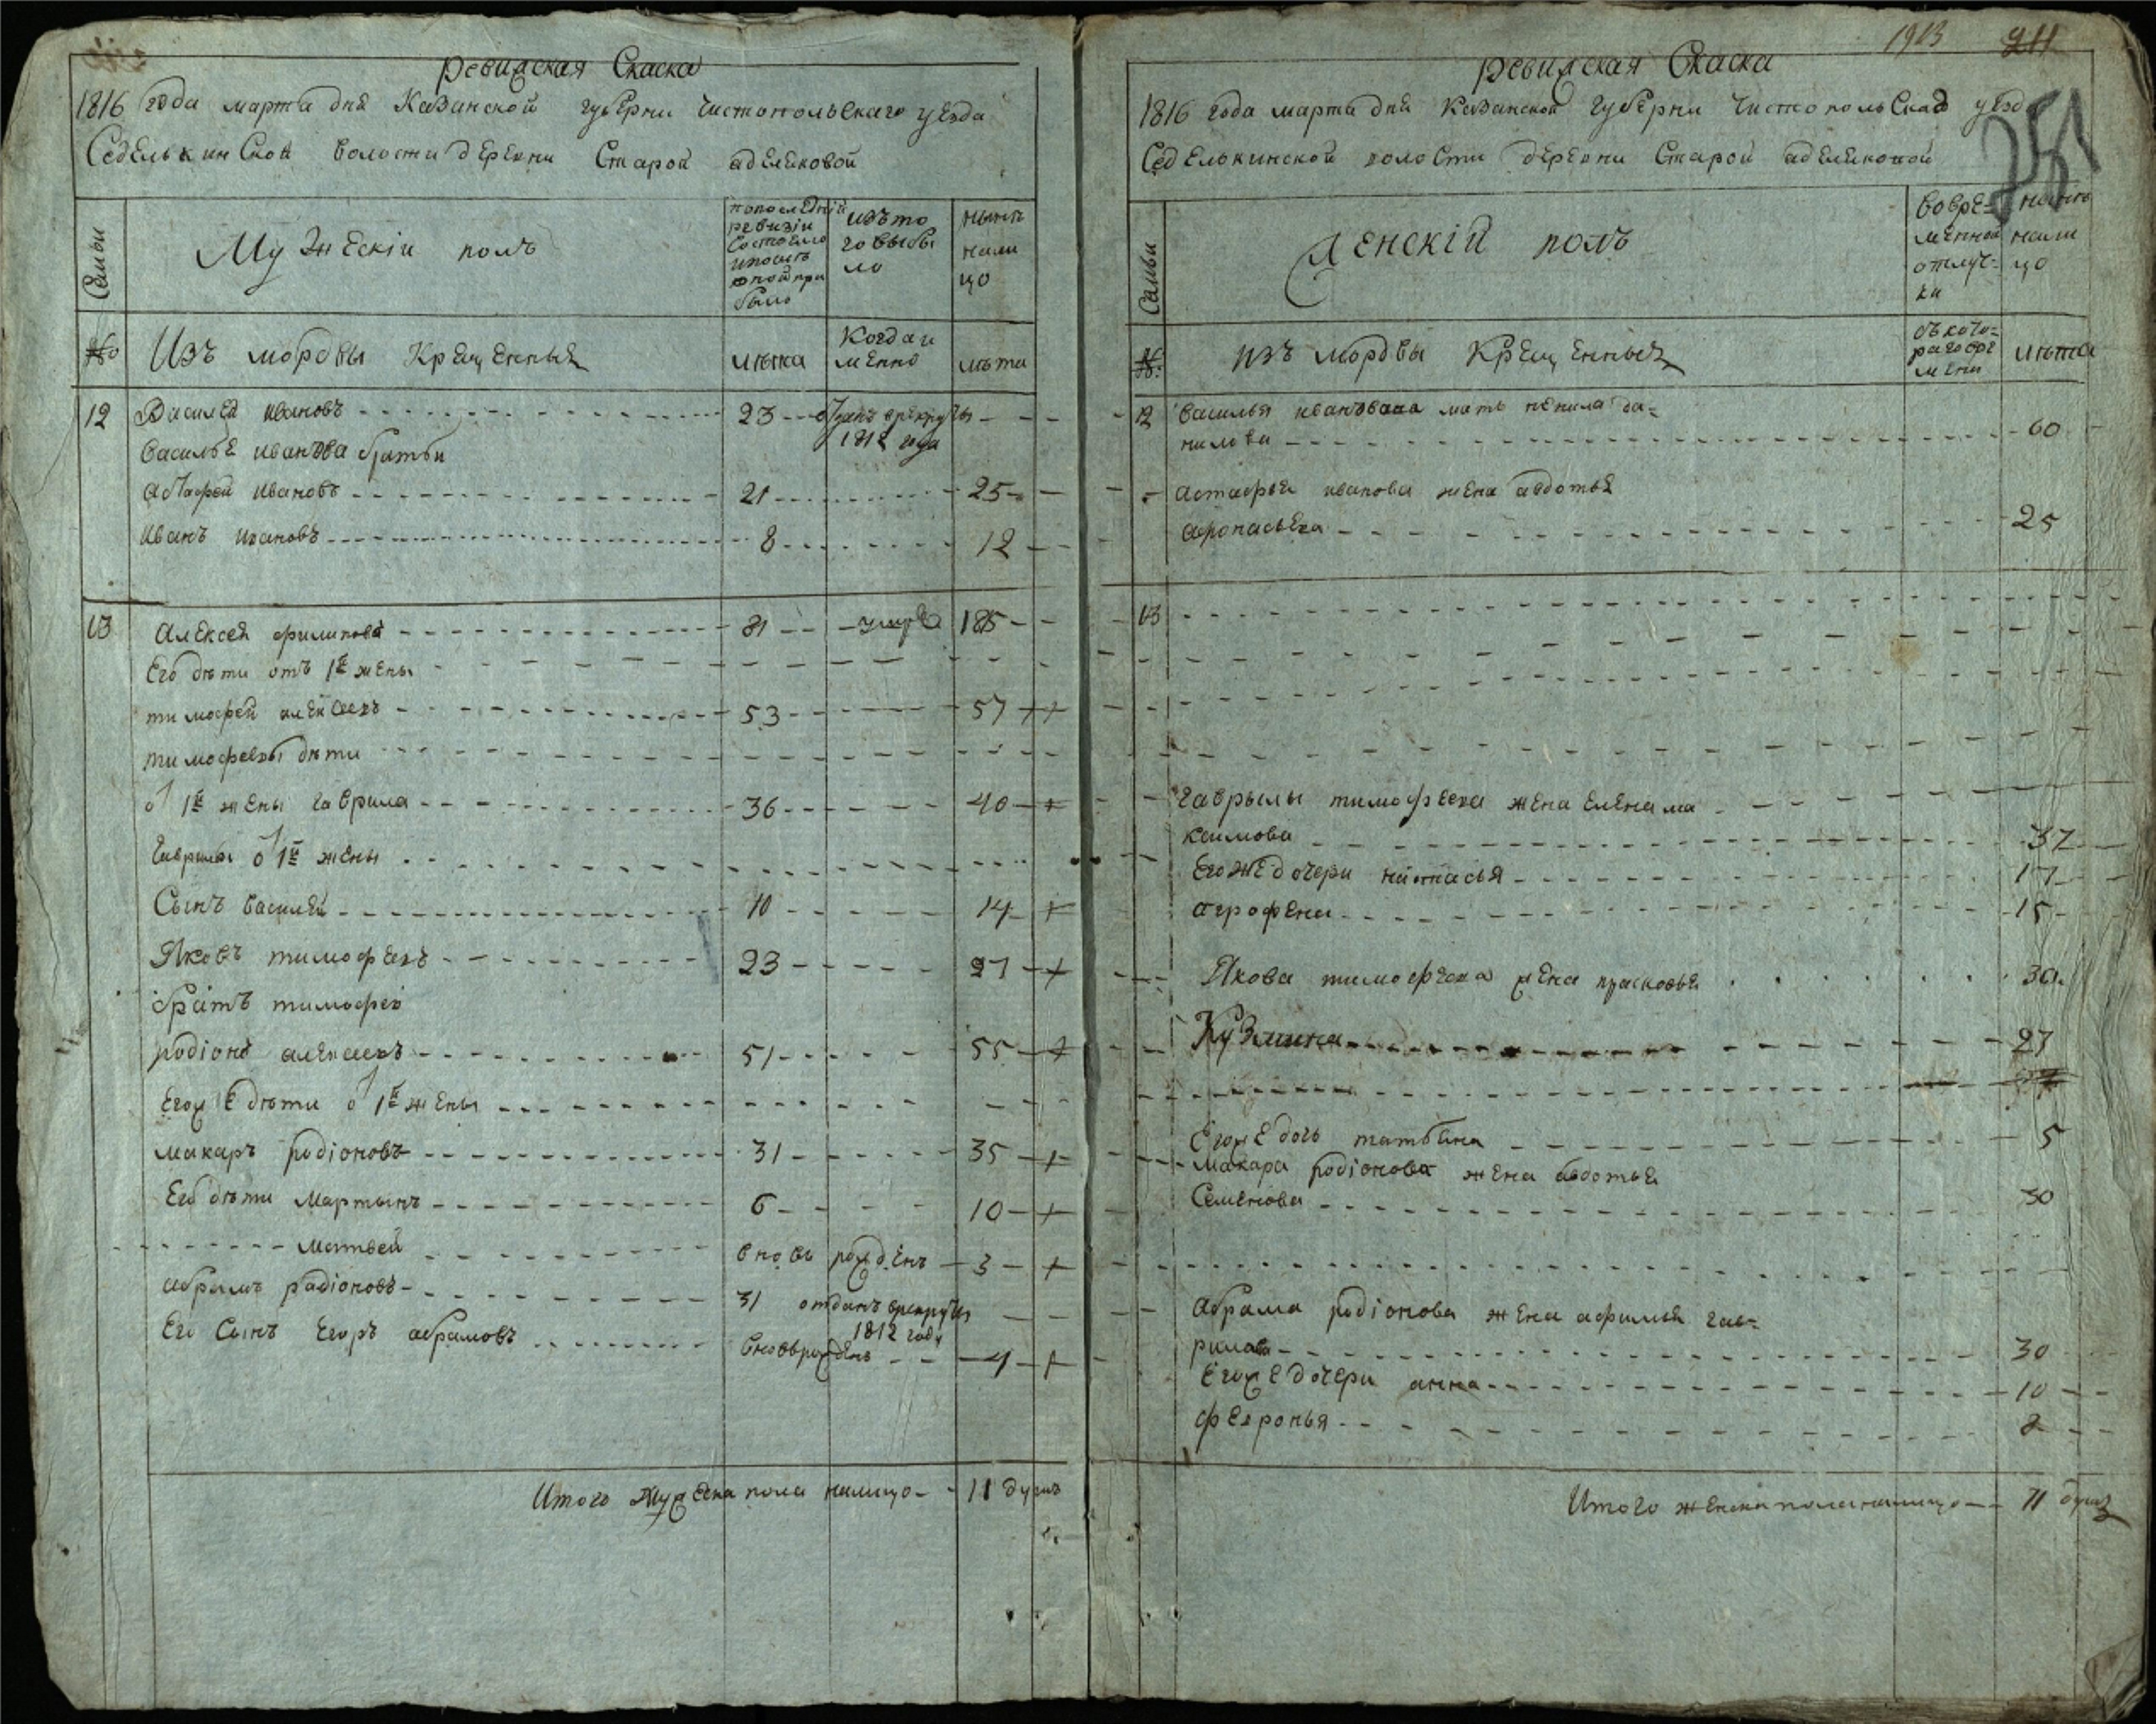 Ревижская Скаска
1816 года марта дня Казанской губерни Чистопольскаго уезда
Седелькинской волости деревни Старой аделяковой
Семьи
Мужескiи полъ
попоследнѣй ревизiи состояло ипослѣ оной при было
изъто го выбы ло
нынѣ нали цо
№
Изъ мордвы Крещенныя
лѣта
Когда и менно
лѣта
12 Василей Ивановъ 23 отданъ врекруты
1812 года
Василья иванова братьи
астафей Ивановъ 21 25
Иванъ ивановъ 8 12
13 Алексей филиповъ 81 умре 1815
Его дѣти отъ 1й жены
тимофей алексеевъ 53 57 +
тимофеевы дѣти
от 1й жены гаврила 36 40 +
Гаврилы от 1й жены
Сынъ василей 10 14 +
Яковъ тимофеевъ 23 27 +
братъ тимофея
родiонъ алексеевъ 51 55 +
Егоже дѣти от 1й жены
макаръ родiоновъ 31 35 +
Его дѣти Мартынъ 6 10 +
Матвей вновь рожденъ 3 +
абрамъ радiоновъ 31 отданъ врекруты
1812 году
Его Сынъ Егоръ абрамовъ вновьрожденъ 4 +
Итого мужеска пола налицо 11 душъ
1913 211
251
Ревижская Скаска
1816 года марта дня Казанской губерни Чистопольскаго уезда
Седелькинской волости деревни Старой аделяковой
Семьи
Женскiй полъ
вовре= менной отлуч= ки
нынѣ нали цо
№
изъ мордвы Крещенныя
съкото= раговре мени
лѣта
12 василья иванъвана мать ненила да=
нилова 60
астафья иванова жена авдотья
афонасьева 25
13
гаврылы тимофеева жена елена ма
каимова 37
Егоже дочери настасья 17
агрофена 15
Якова тимофеева жена прасковья 30
Кузмина 27
Егоже дочь татьяна 5
Макара родiонова жена авдотья
Семенова 30
абрама родiонова жена афимья гав=
рилова 30
Егоже дочери анна 10
февронья 2
Итого женска пола налицо 11 душъ